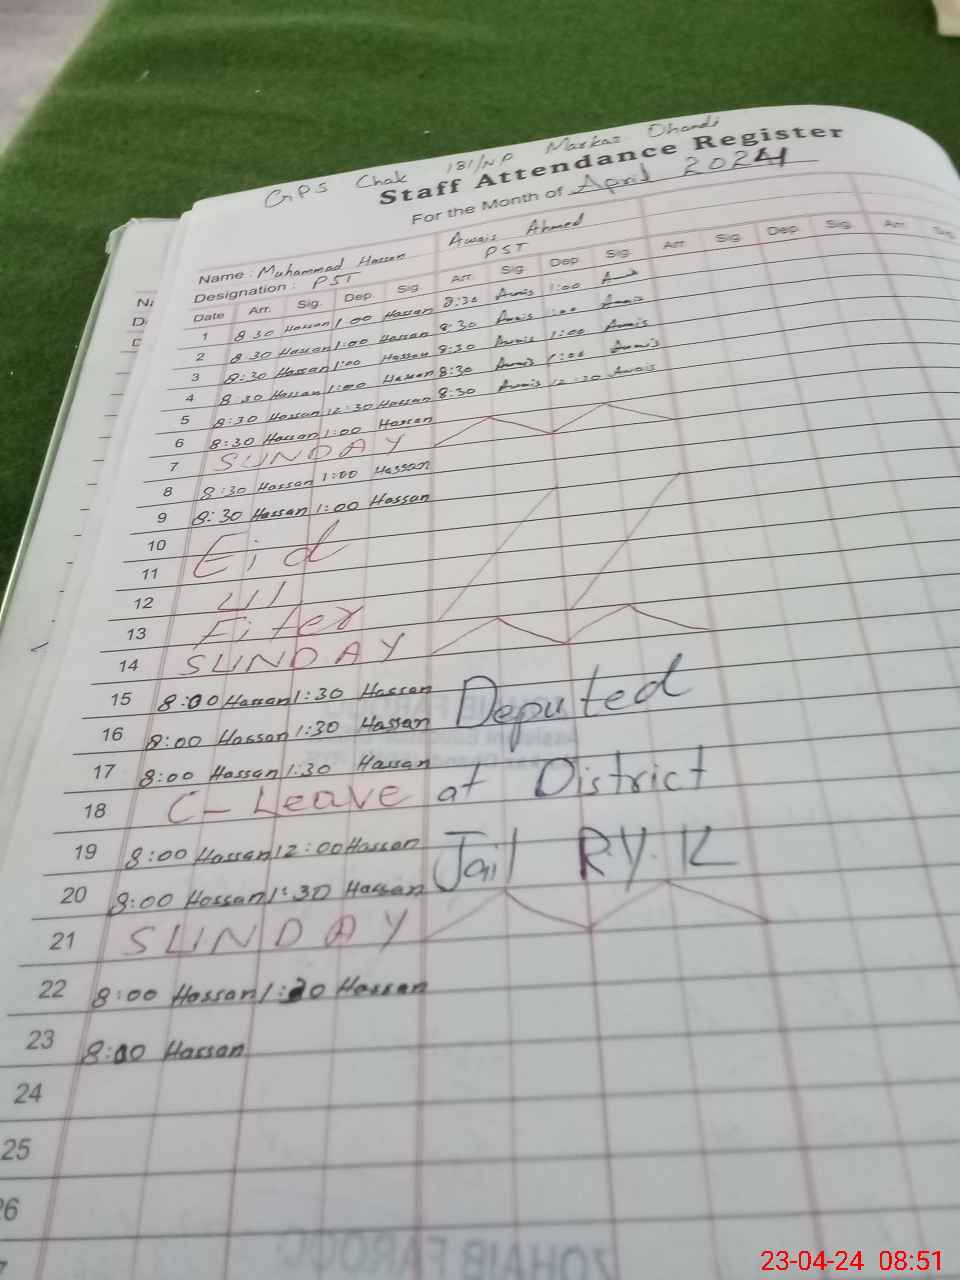 GPS Chak 181/NP Markaz Dhandi
Staff Attendance Register
For the Month of April 2024
Name : Muhammad Hassan Awais Ahmed
Designation : PST PST
Date Arr. Sig. Dep. Sig. Arr. Sig Dep Sig. Arr. Sig. Dep Sig. Arr. Sig.
1 8:30 Hassan 1:00 Hassan 8:30 Awais 1:00 Awais
2 8:30 Hassan 1:00 Hassan 8:30 Awais 1:00 Awais
3 8:30 Hassan 1:00 Hassan 8:30 Awais 1:00 Awais
4 8:30 Hassan 1:00 Hassan 8:30 Awais 1:00 Awais
5 8:30 Hassan 12:30 Hassan 8:30 Awais 12:30 Awais
6 8:30 Hassan 1:00 Hassan
7 SUNDAY
8 8:30 Hassan 1:00 Hassan
9 8:30 Hassan 1:00 Hassan
10 Eid
11
12 Ul
13 Fiter
14 SUNDAY
15 8:00 Hassan 1:30 Hassan Deputed
16 8:00 Hassan 1:30 Hassan
17 8:00 Hassan 1:30 Hassan
18 C-Leave at District
19 8:00 Hassan 12:00 Hassan
20 8:00 Hassan 1:30 Hassan Jail R.Y.K
21 SUNDAY
22 8:00 Hassan 1:30 Hassan
23 8:00 Hassan
24
25
26
ZOHAIB FAROOQ
23-04-24 08:51